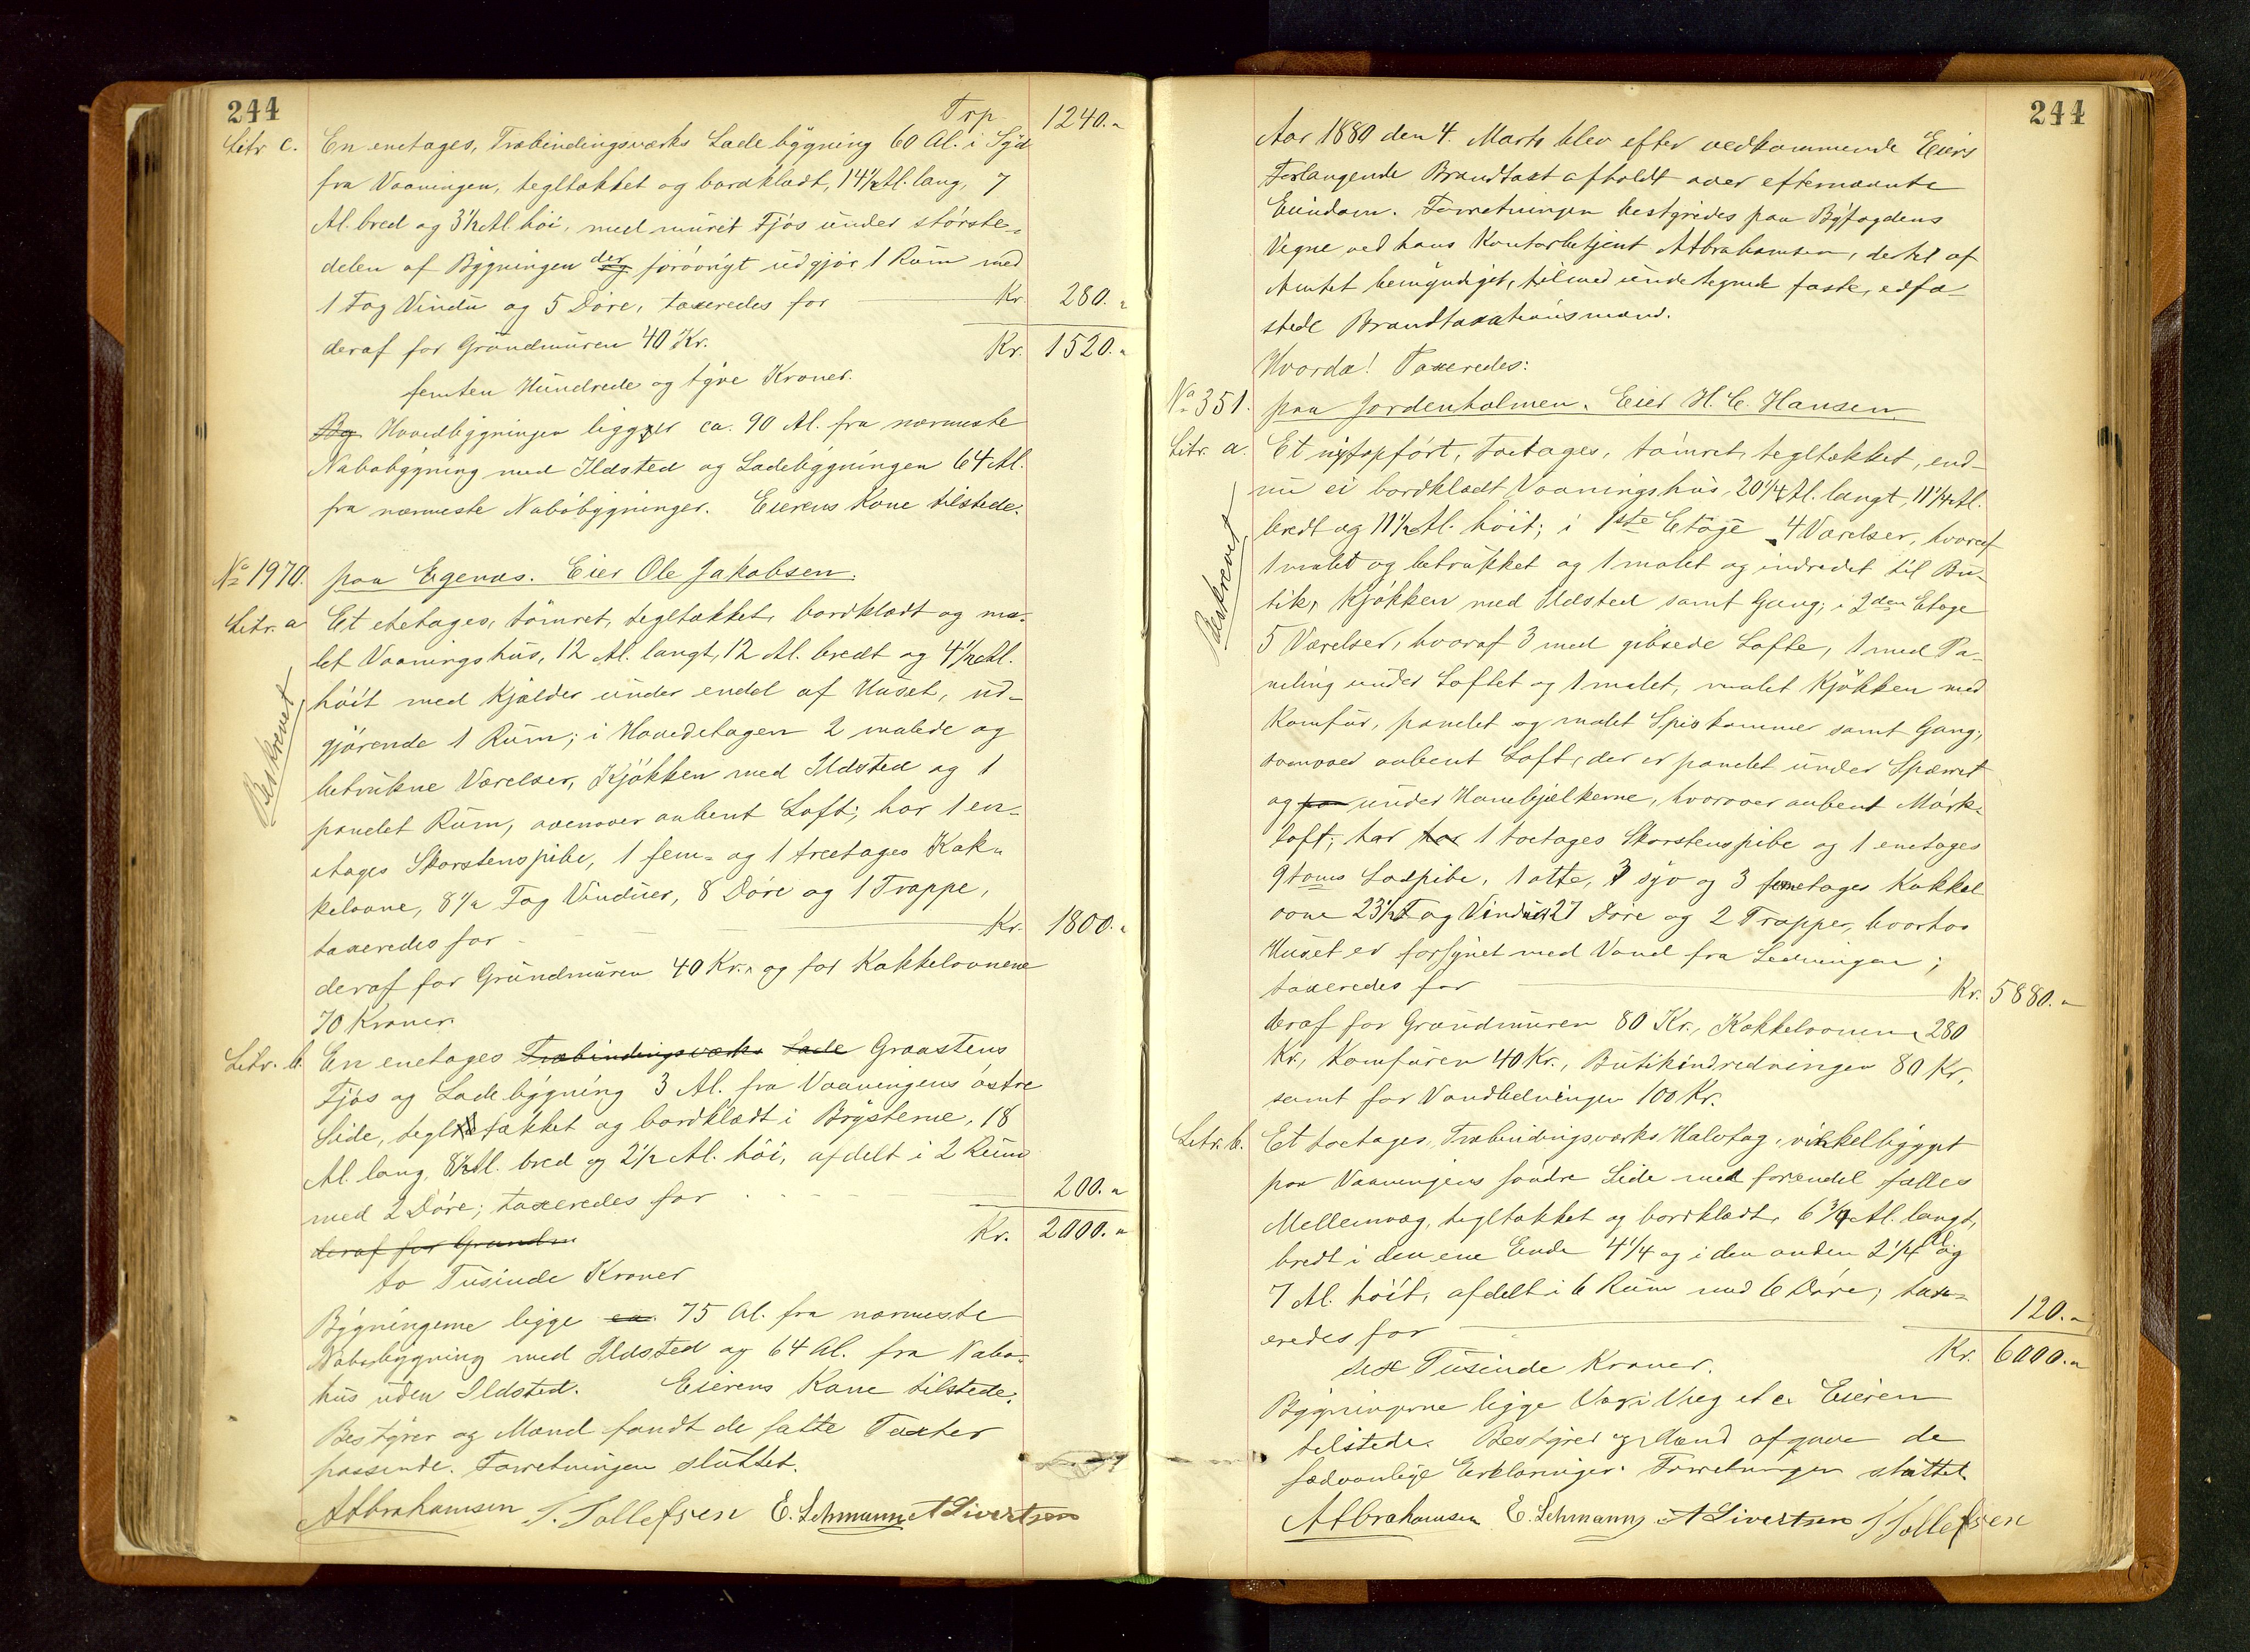 244
Trp 1240.„
Litr c. En enetages, Træbindingsværks Ladebygning 60 Al. i Syd
fra Vaaningen, tegltækket og bordklædt, 14½ Al. lang, 7
Al. bred og 3½ Al. høi, med muret Fjøs under største-
delen af Bygningen der forøvrigt udgjør 1 Rum med
1 Fag Vindu og 5 Døre, taxeredes for Kr. 280.„
deraf for Grundmuren 40 Kr. Kr. 1520.„
femten Hundrede og tyve Kroner.
Hovedbygningen ligger ca. 90 Al. fra nærmeste
Nabobygning med Ildsted og Ladebygningen 64 Al.
fra nærmeste Nabobygninger. Eierens Kone tilstede.
No 1970. paa Egenæs. Eier Ole Jakobsen.
Litr. a Et etetages, tømret, tegltækket, bordklædt og ma-
let Vaaningshus, 12 Al. langt, 12 Al. bredt og 4½ Al.
høit med Kjælder under endel af Huset, ud-
Beskrevet
gjørende 1 Rum; i Hovedetagen 2 malede og
betrukne Værelser, Kjøkken med Ildsted og 1
panelet Rum, ovenover aabent Loft; har 1 en-
etages Skorstenspibe, 1 fem- og 1 treetages Kak-
kelovne, 8½ Fag Vinduer, 8 Døre og 1 Trappe,
taxeredes for Kr. 1800.„
deraf for Grundmuren 40 Kr. og for Kakkelovnene
70 Kroner.
Litr. b. En enetages Træbindingsværks Lade Graastens
Fjøs og Ladebygning 3 Al. fra Vaaningens østre
Side, tegltækket og bordklædt i Brysterne, 18
Al. lang, 8½ Al. bred og 2½ Al. høi, afdelt i 2 Rum
med 2 Døre; taxeredes for 200.„
deraf for Grundm Kr. 2000.„
to Tusinde Kroner
Bygningerne ligge ca. 75 Al. fra nærmeste
Nabobygning med Ildsted og 64 Al. fra Nabo-
hus uden Ildsted. Eierens Kone tilstede.
Bestyrer og Mænd fandt de satte Taxter
passende. Forretningen sluttet.
AAbrahamsen T. Tollefsen E. Lehmann A Sivertsen
244
Aar 1880 den 4. Marts blev efter vedkommende Eiers
Forlangende Brandtaxt afholdt over efternævnte
Eiendom. Forretningen bestyredes paa Byfogdens
Vegne ved hans Kontorbetjent AAbrahamsen, dertil af
Amtet bemyndiget, tilmed undertegnede faste, edfæ-
stede Brandtaxationsmænd.
Hvorda! Taxeredes:
No 351. paa Jordenholmen. Eier H. C. Hansen
Litr. a. Et nyt opført, toetages, tømret, tegltækket, end-
nu ei bordklædt Vaaningshus, 20¼ Al. langt, 11¼ Al.
bredt og 11½ Al. høit; i 1ste Etage 4 Værelser, hvoraf
Beskrevet
1 malet og betrukket og 1 malet og indredet til Bu-
tik, Kjøkken med Ildsted samt Gang; i 2den Etage
5 Værelser, hvoraf 3 med gibsede Lofte, 1 med Pa-
neling under Loftet og 1 malet, malet Kjøkken med
Komfur, panelet og malet Spiskammer samt Gang;
ovenover aabent Loft, der er panelet under Spærret
og paa under Hanebjælkerne, hvorover aabent Mørk-
loft; har har 1 toetages Skorstenspibe og 1 enetages
9 toms Lodpibe, 1 otte, 3 syv og 3 femetages Kakkel
ovne 23½ Fag Vinduer 27 Døre og 2 Trapper, hvorhos
Huset er forsynet med Vand fra Ledningen;
taxeredes for Kr. 5880.„
deraf for Grundmuren 80 Kr., Kakkelovnene 280
Kr., Komfuren 40 Kr., Butikindredningen 80 Kr.
samt for Vandledningen 100 Kr.
Litr. b. Et toetages, Træbindingsværks Halvtag, vinkelbygget
paa Vaaningens søndre Side med forendel fælles
Mellemvæg, tegltækket og bordklædt, 6¾ Al. langt,
bredt i den ene Ende 4¼ og i den anden 2¼ Al. og
7 Al. høit, afdelt i 6 Rum med 6 Døre; tax-
eredes for 120.„
sex Tusinde Kroner. Kr. 6000.„
Bygningerne ligge Væg i Væg etc. Eieren
tilstede. Bestyrer og Mænd afgave de
sædvanlige Erklæringer. Forretningen sluttet.
AAbrahamsen E. Lehmann A Sivertsen T Tollefsen